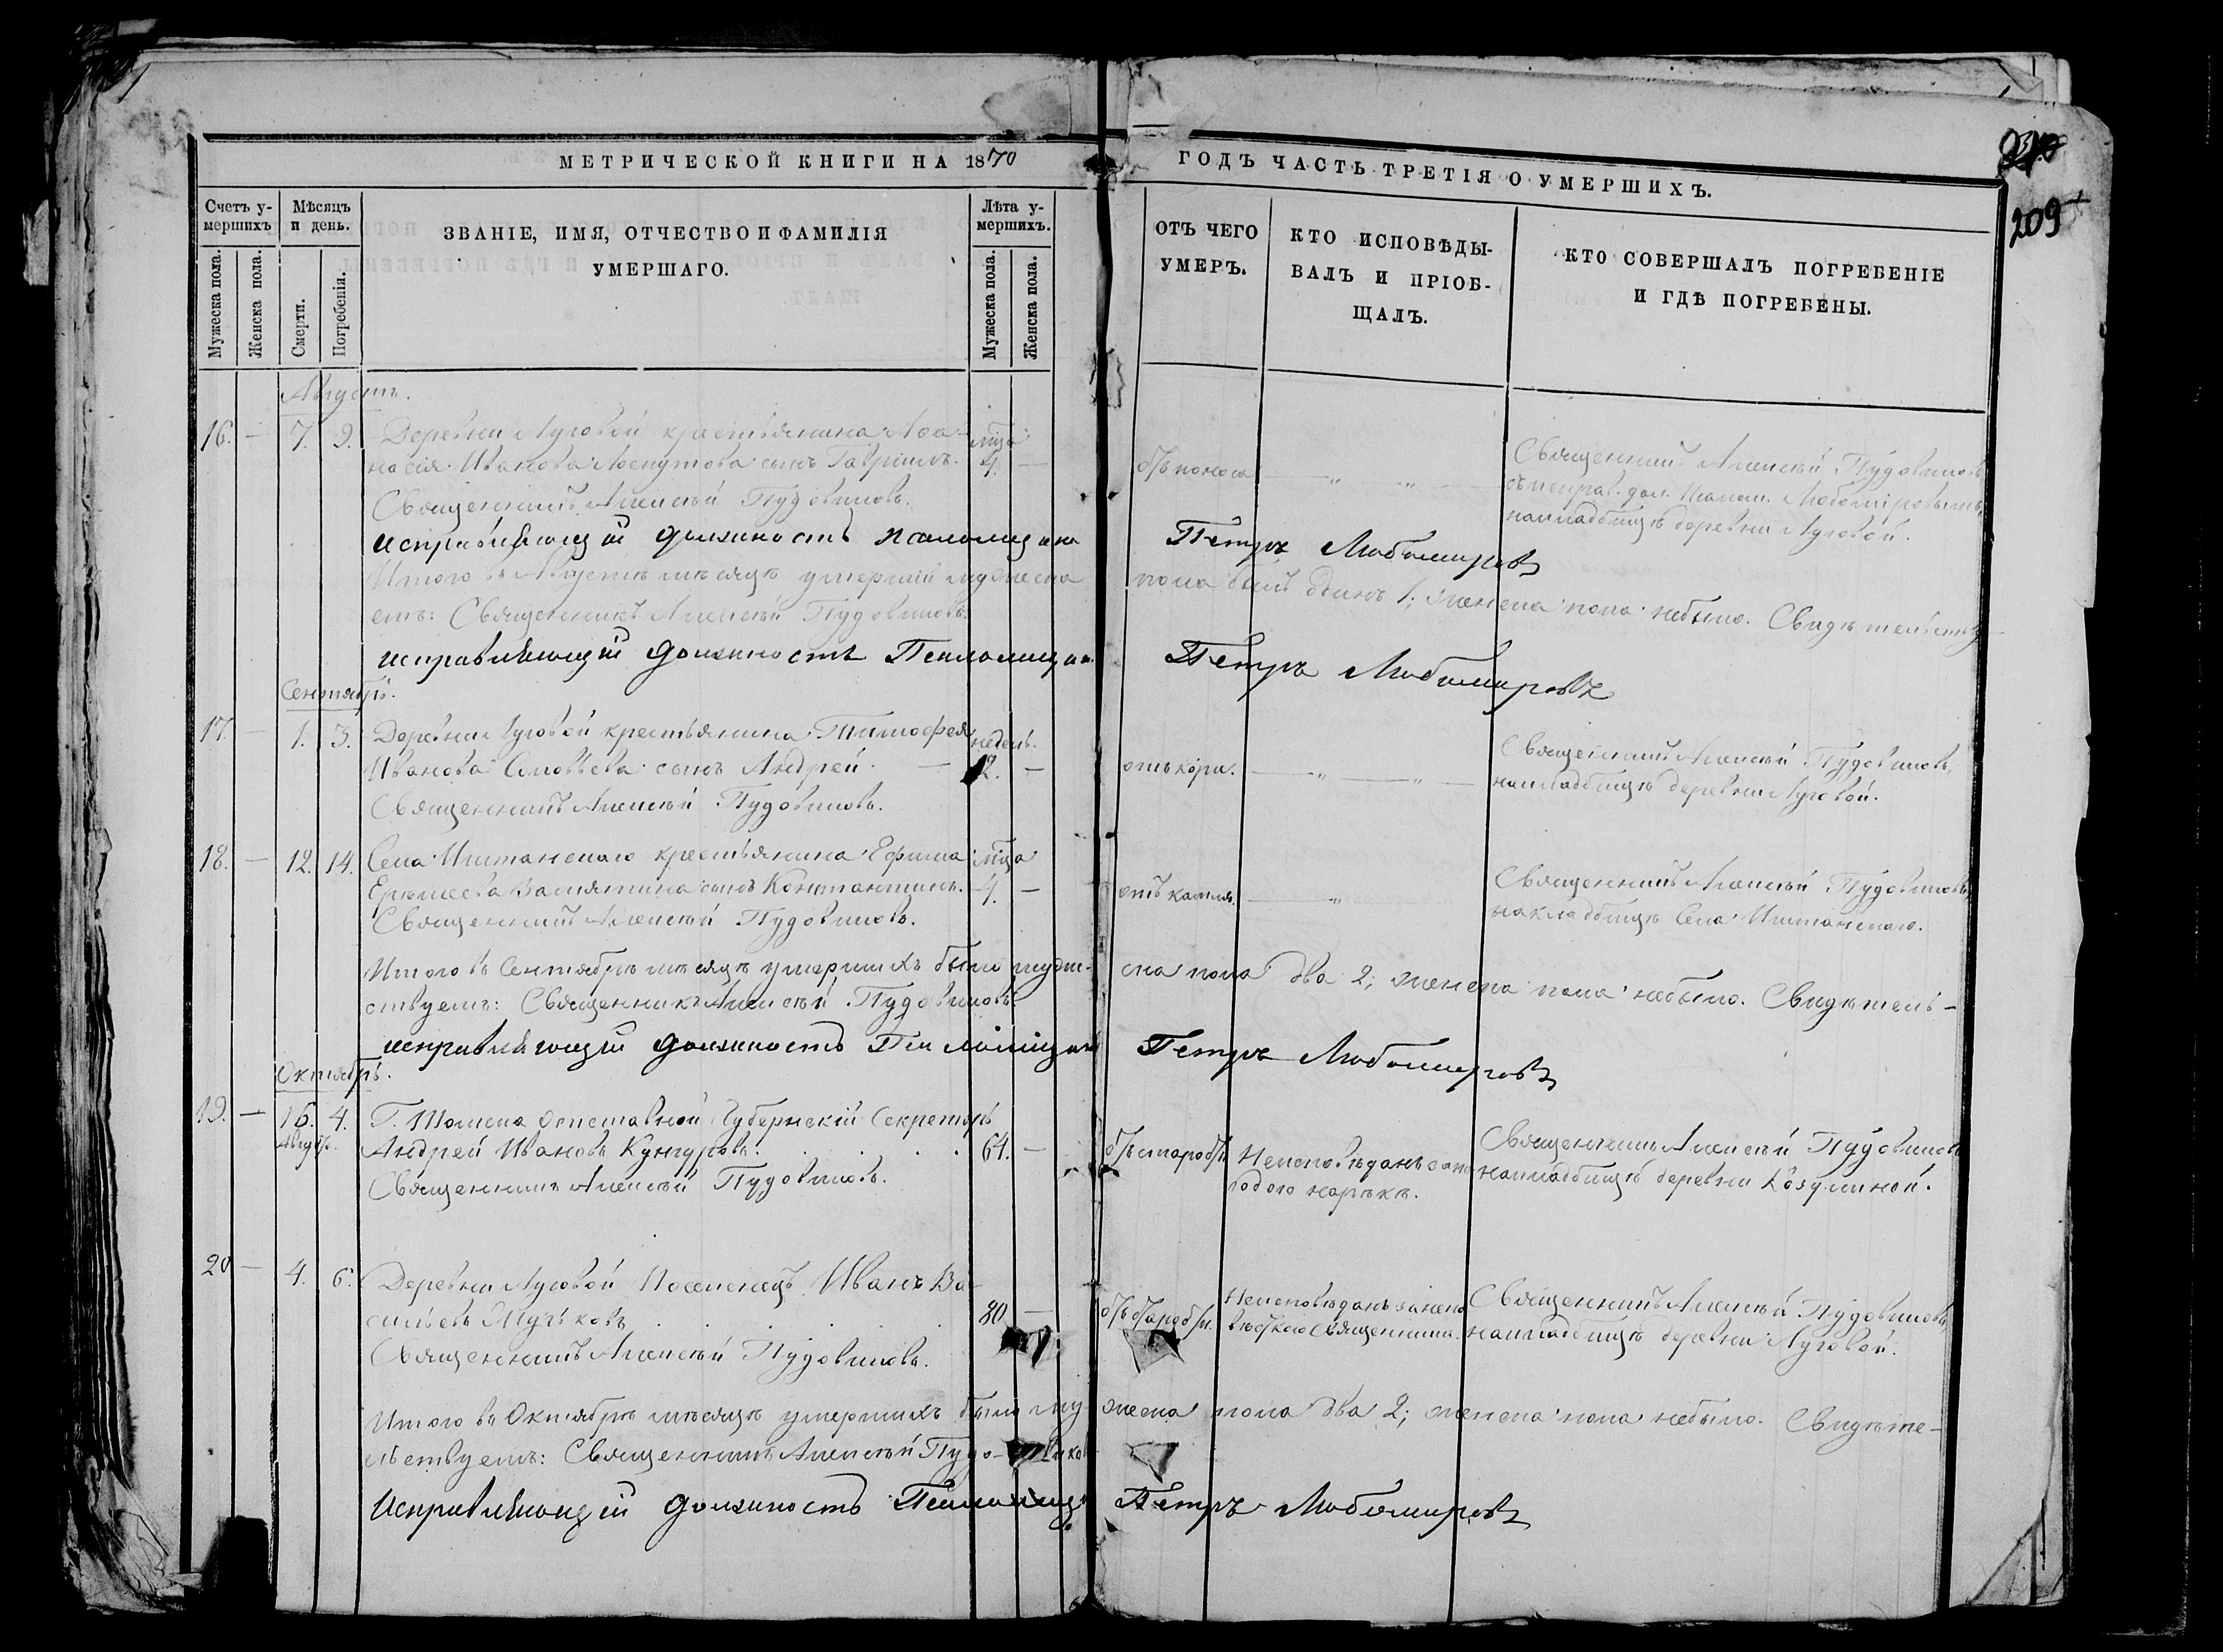 МЕТРИЧЕСКОЙ КНИГИ НА 1870
ГОДЪ ЧАСТЬ ТРЕТІЯ О УМЕРШИХЪ.
209
Счетъ у-
мершихъ
Мѣсяцъ
и день.
ЗВАНІЕ, ИМЯ, ОТЧЕСТВО И ФАМИЛІЯ
УМЕРШАГО.
Лѣта у-
мершихъ.
Мужеска пола.
Женска пола.
Смерти.
Погребенія.
Мужеска пола.
Женска пола.
ОТЪ ЧЕГО
УМЕРЪ.
КТО ИСПОВѢДЫ-
ВАЛЪ И ПРІОБ-
ЩАЛЪ.
КТО СОВЕРШАЛЪ ПОГРЕБЕНІЕ
И ГДѢ ПОГРЕБЕНЫ.
Августъ.
16. — 7. 9. Деревни Луговой крестьянина Аѳа-
насія Иванова сынъ Гавріилъ. 4. —
Священникъ Алексѣй Пудовиковъ.
отъ поноса
Священникъ Алексѣй Пудовиковъ
съ исправ. дол. Псалом. Любомировымъ,
на кладбищѣ деревни Луговой.
Исправляющій должность псаломщика Петръ Любомировъ
Итого въ Августѣ мѣсяцѣ умершій мужеска пола былъ одинъ 1; женска пола небыло. Свидѣтельству-
емъ: Священникъ Алексѣй Пудовиковъ.
исправляющій должность Псаломщика Петръ Любомировъ
Сентябрь.
17. — 1. 3. Деревни Луговой крестьянина Тимофея недель.
Иванова Соловьева сынъ Андрей. — 2. —
Священникъ Алексѣй Пудовиковъ.
отъ кори.
Священникъ Алексѣй Пудовиковъ,
на кладбищѣ деревни Луговой.
18. — 12. 14. Села Иштанскаго крестьянина Ефима
сынъ Константинъ. 4. —
Священникъ Алексѣй Пудовиковъ.
отъ кашля.
Священникъ Алексѣй Пудовиковъ,
на кладбищѣ Села Иштанскаго.
Итого въ Сентябрѣ мѣсяцѣ умершихъ было муже-ска пола два 2; женска пола небыло. Свидѣтель-
ствуемъ: Священникъ Алексѣй Пудовиковъ.
исправляющій должность Псаломщика Петръ Любомировъ
Октябрь.
19. — 16. 4. Г. Томска Отставной Губернскій Секретарь
Август. Андрей Ивановъ Кунгуровъ. 64. —
Священникъ Алексѣй Пудовиковъ.
отъ старости
Неисповѣданъ
Священникъ Алексѣй Пудовиковъ
на кладбищѣ деревни Козулиной.
20 — 4. 6. Деревни Луговой Поселенецъ Иванъ Ва-
сильевъ 80 —
Священникъ Алексѣй Пудовиковъ.
отъ старости.
Неисповѣданъ
Священника.
Священникъ Алексѣй Пудовиковъ,
на кладбищѣ деревни Луговой.
Итого въ Октябрѣ мѣсяцѣ умершихъ было му-жеска пола два 2; женска пола небыло. Свидѣте-
льствуемъ: Священникъ Алексѣй Пудо-виковъ
Исправляющій должность Псаломщ. Петръ Любомировъ